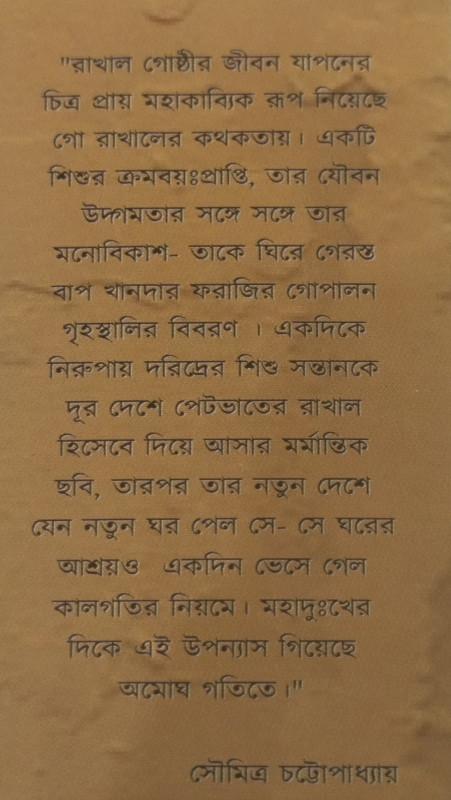 "রাখাল গোষ্ঠীর জীবন যাপনের
চিত্র প্রায় মহাকাব্যিক রূপ নিয়েছে
গো রাখালের কথকতায়। একটি
শিশুর ক্রমবয়ঃপ্রাপ্তি, তার যৌবন
উদ্গমতার সঙ্গে সঙ্গে তার
মনোবিকাশ- তাকে ঘিরে গেরস্ত
বাপ খানদার ফরাজির গোপালন
গৃহস্থালির বিবরণ । একদিকে
নিরুপায় দরিদ্রের শিশু সন্তানকে
দূর দেশে পেটভাতের রাখাল
হিসেবে দিয়ে আসার মর্মান্তিক
ছবি, তারপর তার নতুন দেশে
যেন নতুন ঘর পেল সে- সে ঘরের
আশ্রয়ও একদিন ভেসে গেল
কালগতির নিয়মে। মহাদুঃখের
দিকে এই উপন্যাস গিয়েছে
অমোঘ গতিতে।"
সৌমিত্র চট্টোপাধ্যায়